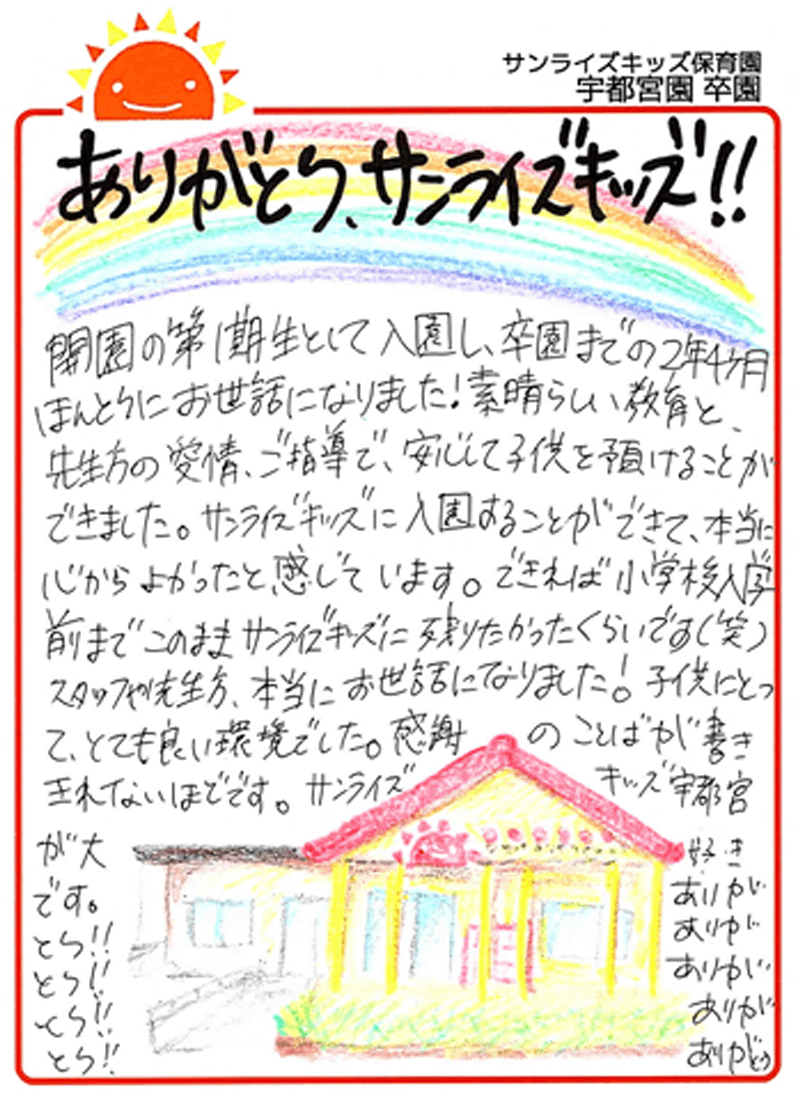 サンライズキッズ保育園
宇都宮園 卒園
ありがとう、サンライズキッズ!!
開園の第1期生として入園し、卒園までの2年4ヶ月
ほんとうにお世話になりました!素晴らしい教育と、
先生方の愛情、ご指導で、安心して子供を預けることが
できました。サンライズキッズに入園することができて、本当に
心からよかったと感じています。できれば小学校入学
前までこのままサンライズキッズに残りたかったくらいです(笑)
スタッフや先生方、本当にお世話になりました!子供にとっ
て、とても良い環境でした。感謝 のことばが書き
きれないほどです。サンライズ キッズ宇都宮
が大 好き
です。 ありが
とう!! ありが
とう!! ありが
とう!! ありが
とう!! ありがとう